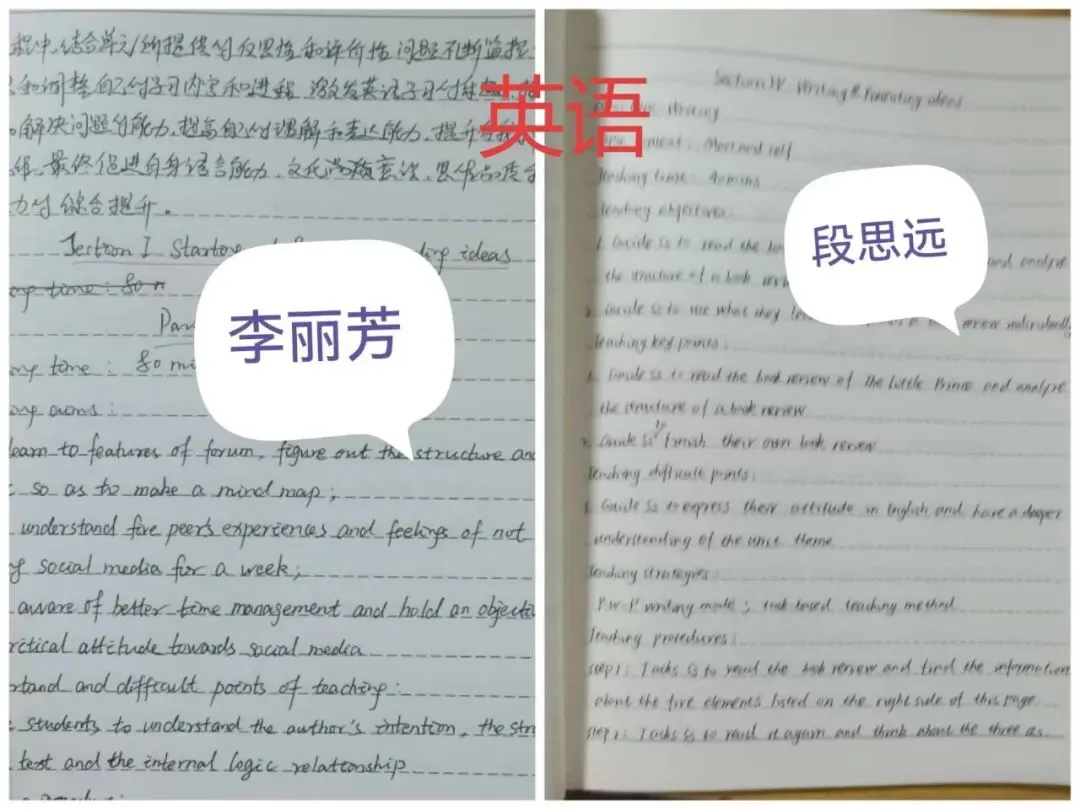 英语
程中,结合单元所提供的反思性和评价性问题不断监控
和调整自己的学习内容和进程,激发英语学习的
解决问题的能力,提高自己的理解和表达能力,提升
维,最终促进自身语言能力、文化 意识、思维品质
力的综合提升。
Section I Starting ideas
time: 80 m
李丽芳
time: 80 min
aims:
learn to features of forum, figure out the structure and
so as to make a mind map;
understand five peer's experiences and feelings of not
social media for a week;
aware of better time management and hold an objective
critical attitude towards social media
and difficult points of teaching:
students to understand the author's intention, the str
text and the internal logic relationship
Section IV Writing & Presenting ideas
Writing
Me and self
Teaching time: 40 mins
Teaching objectives:
段思远
1. Guide Ss to read the and analyse
the structure of a book review
2. Guide Ss to use what they review individually
Teaching key points:
1. Guide Ss to read the book review of The Little Prince and analyse
the structure of a book review
2. Guide Ss to finish their own book review
Teaching difficult points:
1. Guide Ss to express their attitude in English and have a deeper
understanding of the unit theme
Teaching strategies:
P-W-P writing mode; task-based teaching method
Teaching procedures:
step1: T asks Ss to read the book review and find the information
about the five elements listed on the right side of this page
step2: T asks Ss to read it again and think about the three as